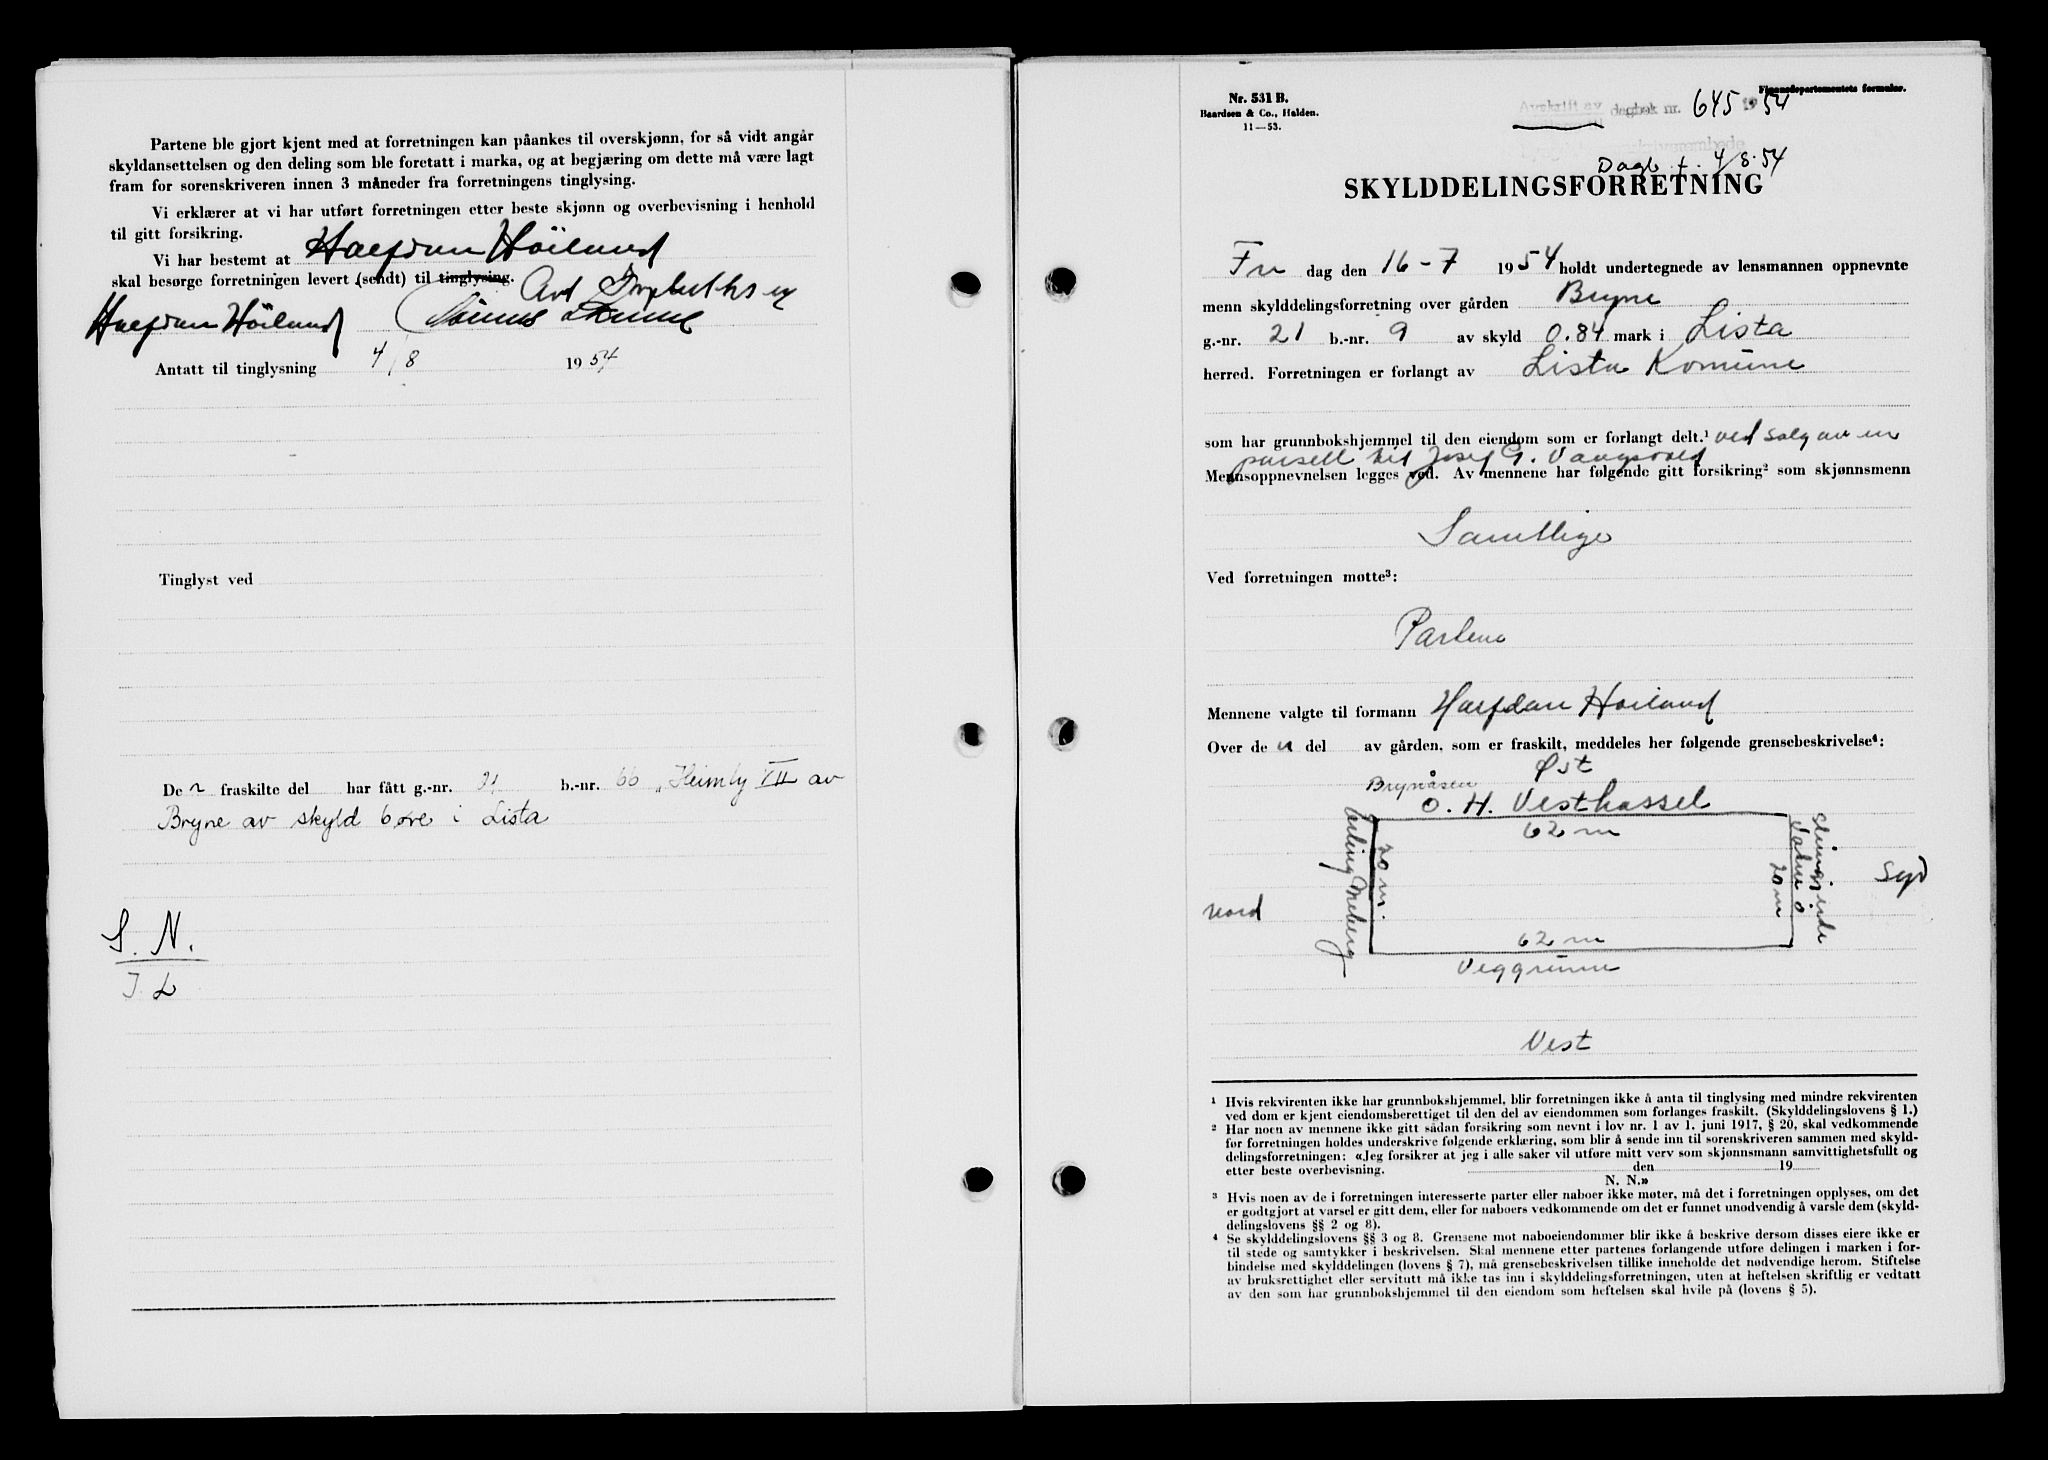 Partene ble gjort kjent med at forretningen kan påankes til overskjønn, for så vidt angår
skyldansettelsen og den deling som ble foretatt i marka, og at begjæring om dette må være lagt
fram for sorenskriveren innen 3 måneder fra forretningens tinglysing.
Vi erklærer at vi har utført forretningen etter beste skjønn og overbevisning i henhold
til gitt forsikring.
Vi har bestemt at Halfdan Höiland
skal besørge forretningen levert (sendt) til tinglysing.
Halfdan Höiland
Antatt til tinglysning 4/8 1954
Tinglyst ved
De n fraskilte del har fått g.-nr. 21 b.-nr. 66 „Heimly VII av
Bryne av skyld 6 øre i Lista
S. N.
J. L
Nr. 531 B.
Baardsen & Co., Halden.
11—53.
Finansdepartementets formular.
Avskrift av dagbok nr. 645 1954
Dagb f. 4/8-54
SKYLDDELINGSFORRETNING
Fre dag den 16-7 1954 holdt undertegnede av lensmannen oppnevnte
menn skylddelingsforretning over gården Bryne
g.-nr. 21 b.-nr. 9 av skyld 0.84 mark i Lista
herred. Forretningen er forlangt av Lista Komune
som har grunnbokshjemmel til den eiendom som er forlangt delt.¹ ved salg av en
parsell til Josef G. Vangsvold
Mennsoppnevnelsen legges ved. Av mennene har følgende gitt forsikring² som skjønnsmenn
Samtlige
Ved forretningen møtte³:
Partene
Mennene valgte til formann Halfdan Höiland
Over de n del av gården, som er fraskilt, meddeles her følgende grensebeskrivelse⁴:
Øst
Brynåsen
O. H. Vesthassel
62 m
20 m.
20 m
Syd
Nord
62 m
Veggrunn
Vest
¹ Hvis rekvirenten ikke har grunnbokshjemmel, blir forretningen ikke å anta til tinglysing med mindre rekvirenten
ved dom er kjent eiendomsberettiget til den del av eiendommen som forlanges fraskilt. (Skylddelingslovens § 1.)
² Har noen av mennene ikke gitt sådan forsikring som nevnt i lov nr. 1 av 1. juni 1917, § 20, skal vedkommende
før forretningen holdes underskrive følgende erklæring, som blir å sende inn til sorenskriveren sammen med skyld-
delingsforretningen: «Jeg forsikrer at jeg i alle saker vil utføre mitt verv som skjønnsmann samvittighetsfullt og
etter beste overbevisning. den 19
N. N.»
³ Hvis noen av de i forretningen interesserte parter eller naboer ikke møter, må det i forretningen opplyses, om det
er godtgjort at varsel er gitt dem, eller for naboers vedkommende om det er funnet unødvendig å varsle dem (skyld-
delingslovens §§ 2 og 8).
⁴ Se skylddelingslovens §§ 3 og 8. Grensene mot naboeiendommer blir ikke å beskrive dersom disses eiere ikke er
til stede og samtykker i beskrivelsen. Skal mennene etter partenes forlangende utføre delingen i marken i for-
bindelse med skylddelingen (lovens § 7), må grensebeskrivelsen tillike inneholde det nødvendige herom. Stiftelse
av bruksrettighet eller servitutt må ikke tas inn i skylddelingsforretningen, uten at heftelsen skriftlig er vedtatt
av den som har grunnbokshjemmel til den eiendom som heftelsen skal hvile på (lovens § 5).